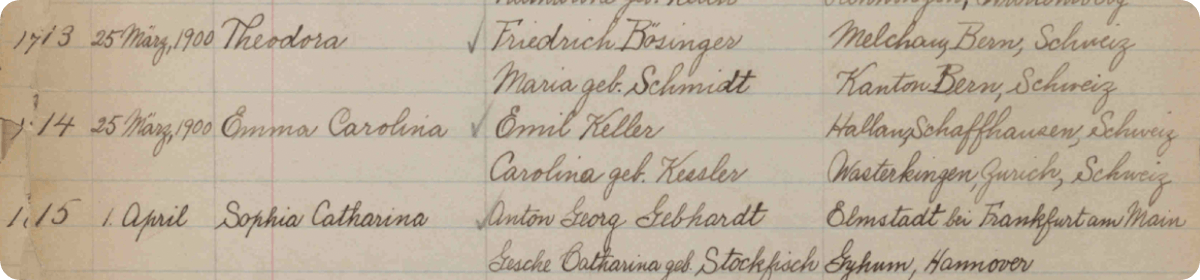 1713 25 März, 1900 Theodora ✓ Friedrich Bösinger Melchau, Bern, Schweiz
Maria geb. Schmidt Kanton Bern, Schweiz
14 25 März, 1900 Emma Carolina ✓ Emil Keller Hallau, Schaffhausen, Schweiz
Carolina geb. Kessler Wasterkingen, Zurich, Schweiz
15 1. April Sophia Catharina ✓ Anton Georg Gebhardt Elmstadt bei Frankfurt am Main
Gesche Catharina geb. Stockfisch Gyhum, Hannover